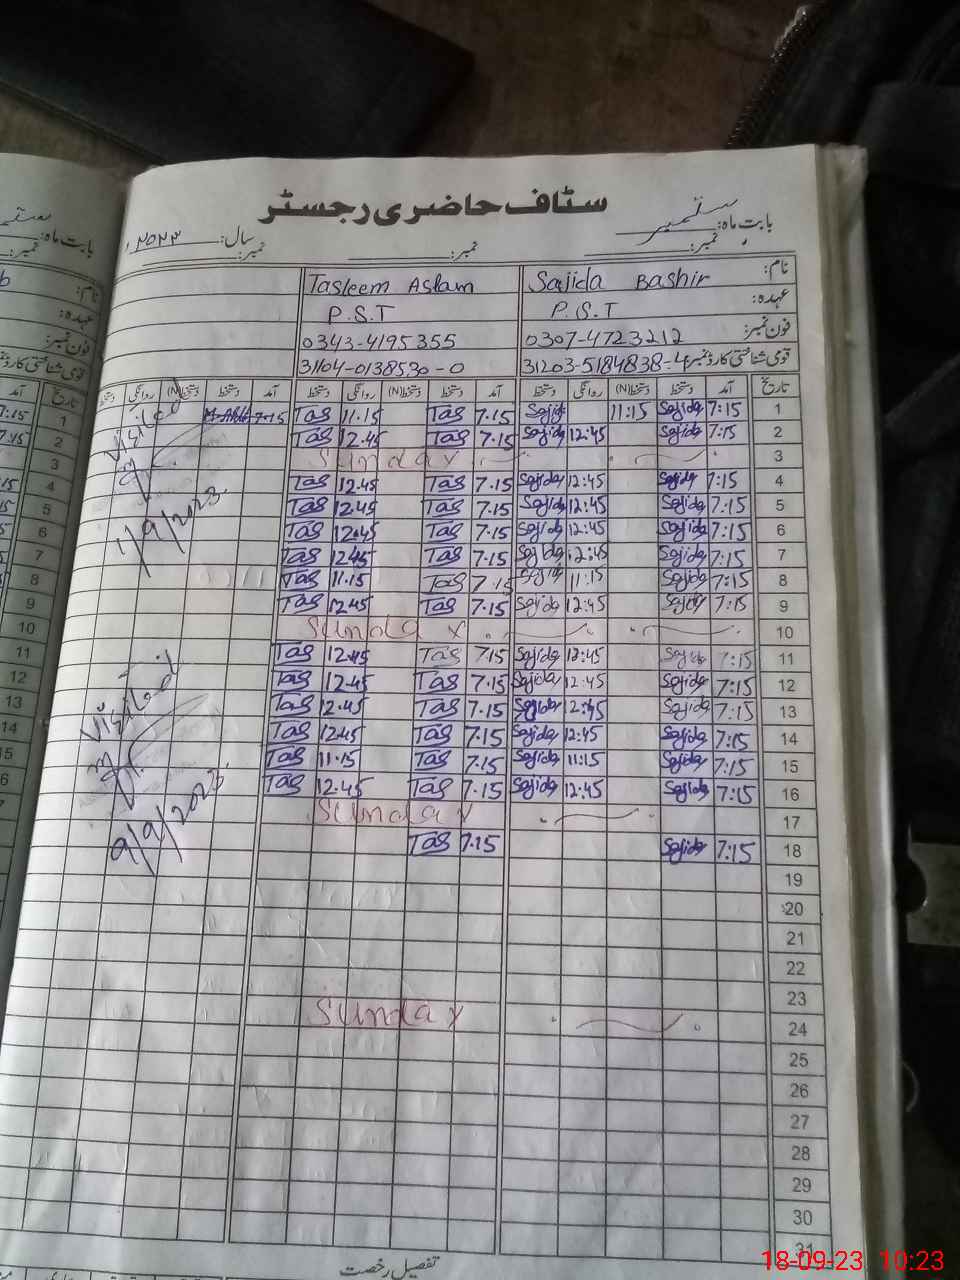 سٹاف حاضری رجسٹر
بابت ماہ: ستمبر سال: ۲۰۲۳ء
نمبر: نمبر: نمبر:
نام: Sajida Bashir Tasleem Aslam
عہدہ: P.S.T P.S.T
فون نمبر: 0307-4723212 0343-4195355
قومی شناختی کارڈ نمبر 31203-5184838-4 31104-0138530-0
تاریخ آمد دستخط دستخط(N) روانگی دستخط آمد دستخط دستخط(N) روانگی دستخط آمد دستخط دستخط(N) روانگی
1 7:15 Sajida 11:15 Sajid 7.15 Tas 11.15 Tas 7.15
2 7:15 Sajida 12:45 Sajida 7.15 Tas 12.45 Tas
3 Sunday
4 7:15 Sajida 12:45 Sajida 7.15 Tas 12.45 Tas
5 7:15 Sajida 12:45 Sajida 7.15 Tas 12.45 Tas
6 7:15 Sajida 12:45 Sajida 7.15 Tas 12.45 Tas
7 7:15 Sajida 12:45 Sajida 7.15 Tas 12.45 Tas
8 7:15 Sajida 11:15 Sajida 7.15 Tas 11.15 Tas
9 7:15 Sajida 12:45 Sajida 7.15 Tas 12.45 Tas
10 Sunday
11 7:15 Sajida 12:45 Sajida 7.15 Tas 12.45 Tas
12 7:15 Sajida 12:45 Sajida 7.15 Tas 12.45 Tas
13 7:15 Sajida 12:45 Sajida 7.15 Tas 12.45 Tas
14 7:15 Sajida 12:45 Sajida 7.15 Tas 12.45 Tas
15 7:15 Sajida 11:15 Sajida 7.15 Tas 11.15 Tas
16 7:15 Sajida 12:45 Sajida 7.15 Tas 12.45 Tas
17 Sunday
18 7:15 Sajida 7.15 Tas
19
20
21
22
23
24 Sunday
25
26
27
28
29
30
31
Visited
1/9/2023
Visited
9/9/2023
تفصیل رخصت
18-09-23 10:23